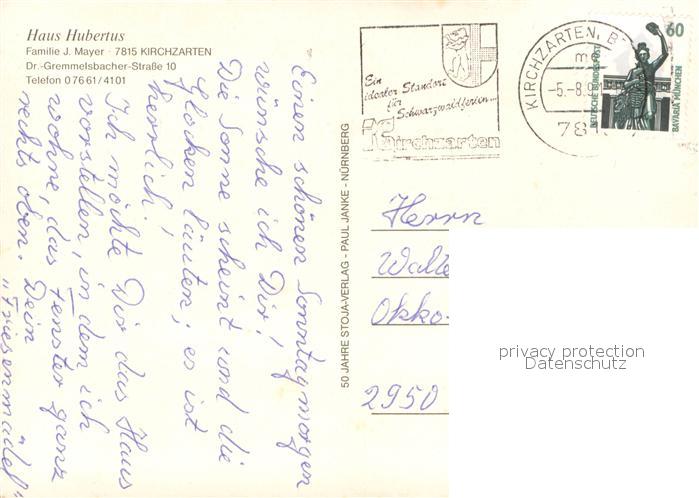 Haus Hubertus
Familie J. Mayer · 7815 KIRCHZARTEN
Dr.-Gremmelsbacher-Straße 10
Telefon 07661/4101
Einen schönen Sonntagmorgen
wünsche ich Dir!
Die Sonne scheint und die
Glocken läuten; es ist
herrlich!
Ich möchte Dir das Haus
vorstellen, in dem ich
wohne, das Fenster ganz
rechts oben. Dein
"Friesenmädel"
50 JAHRE STOJA-VERLAG - PAUL JANKE - NÜRNBERG
Ein
idealer Standort
für
Schwarzwaldferien...
Kirchzarten
KIRCHZARTEN, B
-5.-8.
781
60
DEUTSCHE BUNDESPOST
BAVARIA MÜNCHEN
Herrn
Walte
Okko
2950
privacy protection
Datenschutz